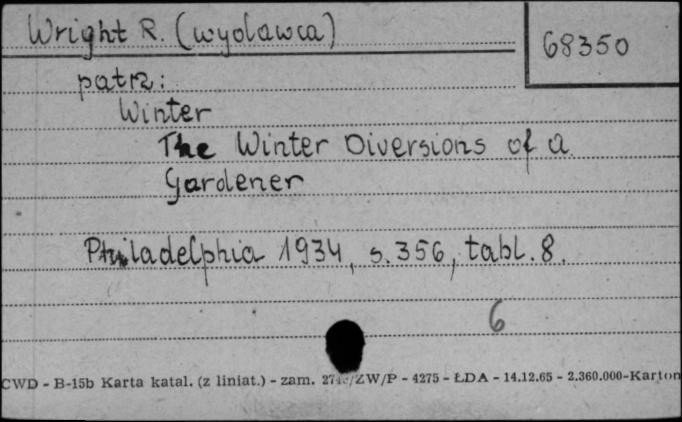 Wright R. (wydawca)
68350
patrz:
Winter
The Winter Diversions of a
Gardener
Philadelphia 1934, s. 356, tabl. 8.
6
CWD - B-15b Karta katal. (z liniat.) - zam. /ZW/P - 4275 - ŁDA - 14.12.65 - 2.360.000-Karton